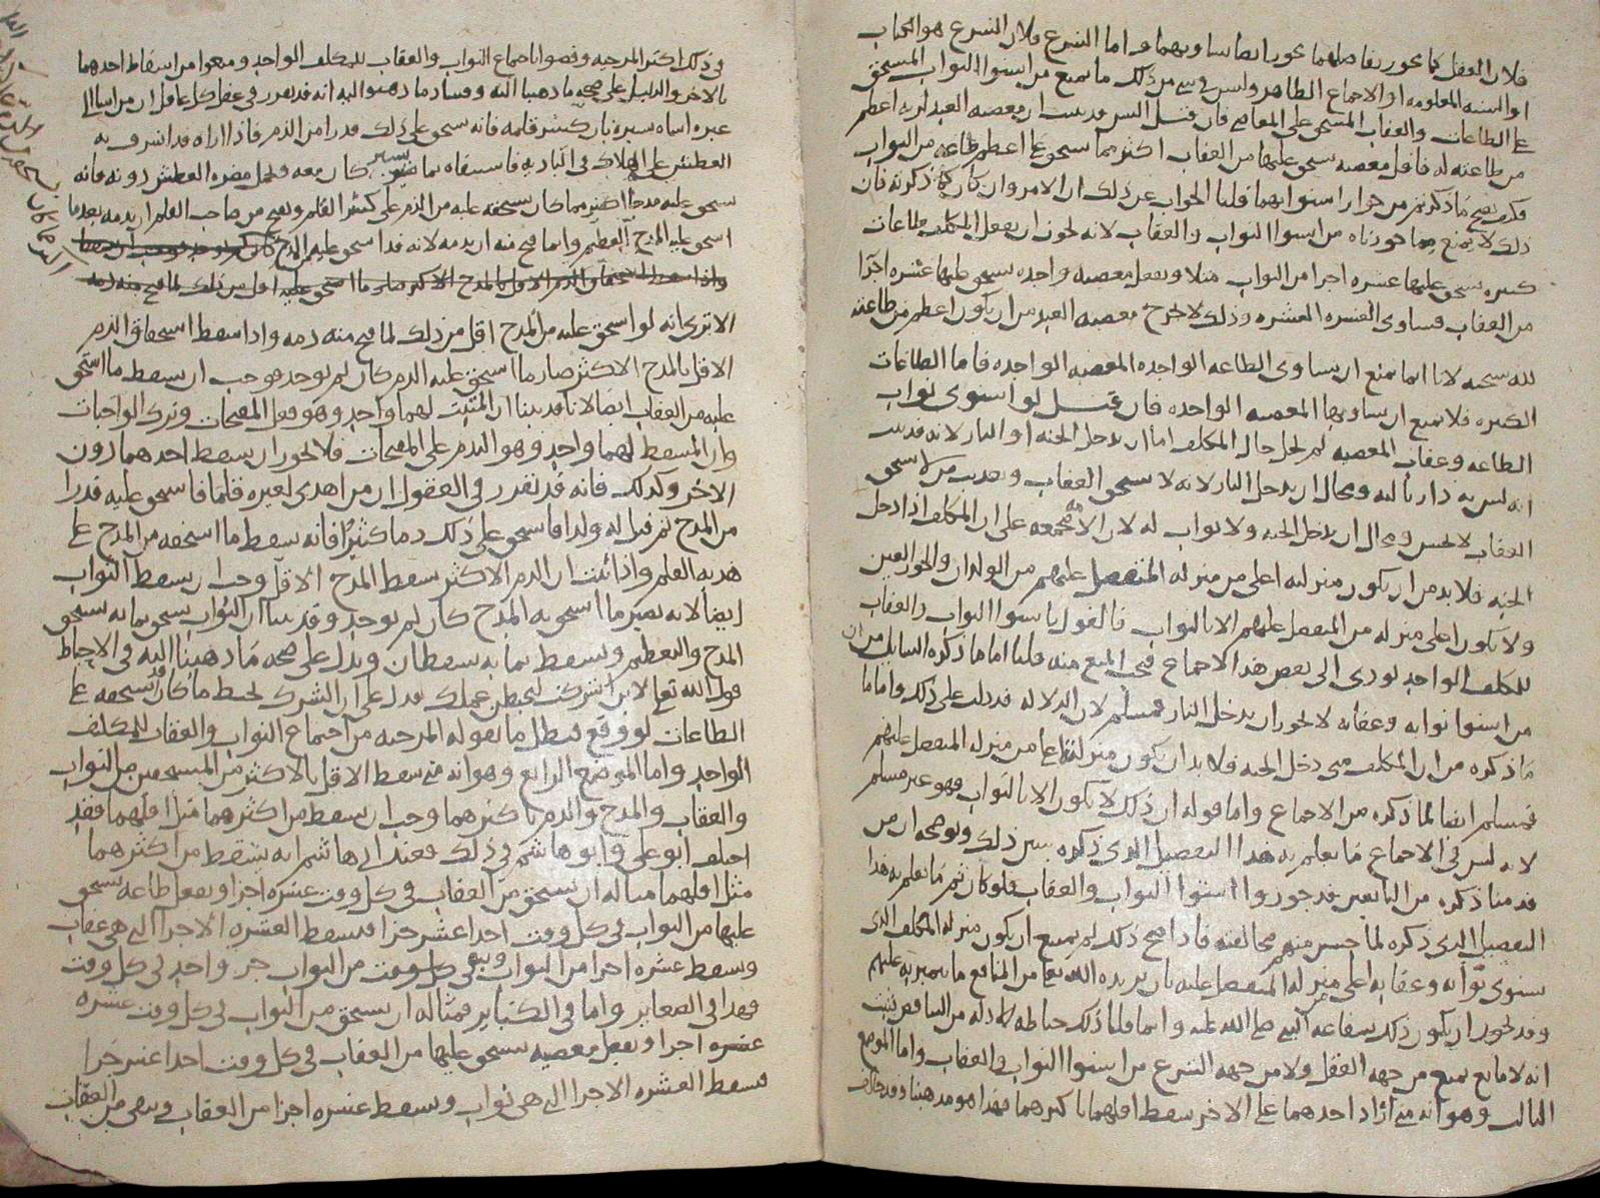 فلان العقل كما يجوز تفاضلهما يجوز ايضا تساويهما واما الشرع فلان الشرع هو الكتاب
او السنه المعلومه او الاجماع الظاهر وليس في شي من ذلك ما يمنع من استوا الثواب المستحق
على الطاعات والعقاب المستحق على المعاصي فان قيل اليس قد ثبت ان معصيه العبد لربه اعظم
من طاعته له فاقل معصيه يستحق عليها من العقاب اكثر مما يستحق على اعظم طاعه من الثواب
فكيف يصح ما ذكرتم من جواز استوايهما قلنا الجواب عن ذلك ان الامر وان كان كما ذكرته فان
ذلك لا يمنع مما جوزناه من استوا الثواب والعقاب لانه يجوز ان يفعل المكلف طاعات
كثيره يستحق عليها عشره اجزا من الثواب مثلا ويفعل معصيه واحده يستحق عليها عشره اجزا
من العقاب فتساوى العشره العشره وذلك لا يخرج معصيه العبد من ان يكون اعظم من طاعته
لله سبحنه لانا انما نمنع ان تساوى الطاعه الواحده المعصيه الواحده فاما الطاعات
الكثيره فلا يمتنع ان تساويها المعصيه الواحده فان قيل لو استوى ثواب
الطاعه وعقاب المعصيه لم يخل حال المكلف اما ان يدخل الجنه او النار لانه قد ثبت
انه ليس ثم دار ثالثه ومحال ان يدخل النار لانه لا يستحق العقاب وتعذيب من لا يستحق
العقاب لا يحسن ومحال ان يدخل الجنه ولا ثواب له لان الامه مجمعه على ان المكلف اذا دخل
الجنه فلا بد من ان يكون منزلته اعلى من منزله المتفضل عليهم من الولدان والحور العين
ولا يكون اعلى منزله من المتفضل عليهم الا بالثواب فالقول باستوا الثواب والعقاب
للمكلف الواحد يودي الى نقض هذا الاجماع فيجب المنع منه قلنا اما ما ذكره السايل من ان
من استوا ثوابه وعقابه لا يجوز ان يدخل النار فمسلم لان الدلاله قد دلت على ذلك واما ما
ما ذكره من ان المكلف متى دخل الجنه فلا بد ان يكون منزلته اعلى من منزله المتفضل عليهم
فمسلم ايضا لما ذكره من الاجماع واما قوله ان ذلك لا يكون الا بالثواب فهو غير مسلم
لانه ليس في الاجماع ما يعلم به هذا التفصيل الذي ذكره يبين ذلك ويوضحه ان من
قدمنا ذكره من التابعين قد جوزوا استوا الثواب والعقاب فلو كان ثم ما يعلم به هذا
التفصيل الذي ذكره لما حسن منهم مخالفته فاذا صح ذلك لم يمتنع ان يكون منزله المكلف الذي
يستوى ثوابه وعقابه اعلى من منزله المتفضل عليه بان يزيده الله تعالى من المنافع ما يتميز به عليهم
وقد يجوز ان يكون ذلك بشفاعه النبي صلى الله عليه وانما قلنا ذلك حياطه لادله من التناقض فثبت
انه لا مانع يمنع من جهه العقل ولا من جهه الشرع من استوا الثواب والعقاب واما الموضع
الثالث وهو انه متى زاد احدهما على الاخر سقط اقلهما باكثرهما فهذا هو مذهبنا وقد خالف
في ذلك اكثر المرجيه وقضوا باجتماع الثواب والعقاب للمكلف الواحد ومنعوا من اسقاط احدهما
بالاخر والدليل على صحه ما ذهبنا اليه وفساد ما ذهبوا اليه انه قد تقرر في عقل كل عاقل ان من اسا الى
غيره اساه يسيره بان كسر قلمه فانه يستحق على ذلك قدرا من الذم فاذا اراه وقد اشرف به
العطش على الهلاك في الباديه فاسقاه بما يسير كان معه وتحمل مضره العطش دونه فانه
يستحق عليه مدحا اكثر مما كان يستحقه عليه من الذم على كسر القلم ويقبح من صاحب القلم ان يذمه بعد ما
استحق عليه المدح العظيم وانما قبح منه ان يذمه لانه قد استحق عليه المدح
الا ترى انه لو استحق عليه من المدح اقل من ذلك لما قبح منه ذمه واذا سقط استحقاق الذم
الاقل بالمدح الاكثر صار ما استحق عليه الذم كان لم يوجد فوجب ان يسقط ما استحق
عليه من العقاب ايضا لانا قد بينا ان المثبت لهما واحد وهو فعل المقبحات وترك الواجبات
وان المسقط لهما واحد وهو الندم على المقبحات فلا يجوز ان يسقط احدهما دون
الاخر وكذلك فانه قد تقرر في العقول ان من اهدى لغيره قلما فاستحق عليه قدرا
من المدح ثم قتل له ولدا فاستحق على ذلك ذما كثيرا فانه يسقط ما استحقه من المدح على
هديه القلم واذا ثبت ان الذم الاكثر يسقط المدح الاقل وجب ان يسقط الثواب
ايضا لانه يصير ما استحق به المدح كان لم يوجد وقد بينا ان الثواب يستحق بما به يستحق
المدح والتعظيم ويسقط بما به يسقطان ويدل على صحه ما ذهبنا اليه في الاحباط
قول الله تعالى لان اشركت ليحبطن عملك فدل على ان الشرك يحبط ما كان قد يستحقه على
الطاعات لو وقع فبطل ما تقوله المرجيه من اجتماع الثواب والعقاب للمكلف
الواحد واما الموضع الرابع وهو انه متى سقط الاقل بالاكثر من المستحقين من الثواب
والعقاب والمدح والذم باكثرهما وجب ان يسقط من اكثرهما مثل اقلهما فقد
اختلف ابو علي وابو هاشم في ذلك فعند ابي هاشم انه يسقط من اكثرهما
مثل اقلهما مثاله ان يستحق من العقاب في كل وقت عشره اجزا ويفعل طاعه يستحق
عليها من الثواب في كل وقت احد عشر جزا فتسقط العشره الاجزا التي هي عقاب
وتسقط عشره اجزا من الثواب ويبقى في كل وقت من الثواب جز واحد في كل وقت
فهذا في الصغاير واما في الكباير فمثاله ان يستحق من الثواب في كل وقت عشره
عشره اجزا ويفعل معصيه يستحق عليها من العقاب في كل وقت احد عشر جزا
فتسقط العشره الاجزا التي هي ثواب وتسقط عشره اجزا من العقاب ويبقى من العقاب